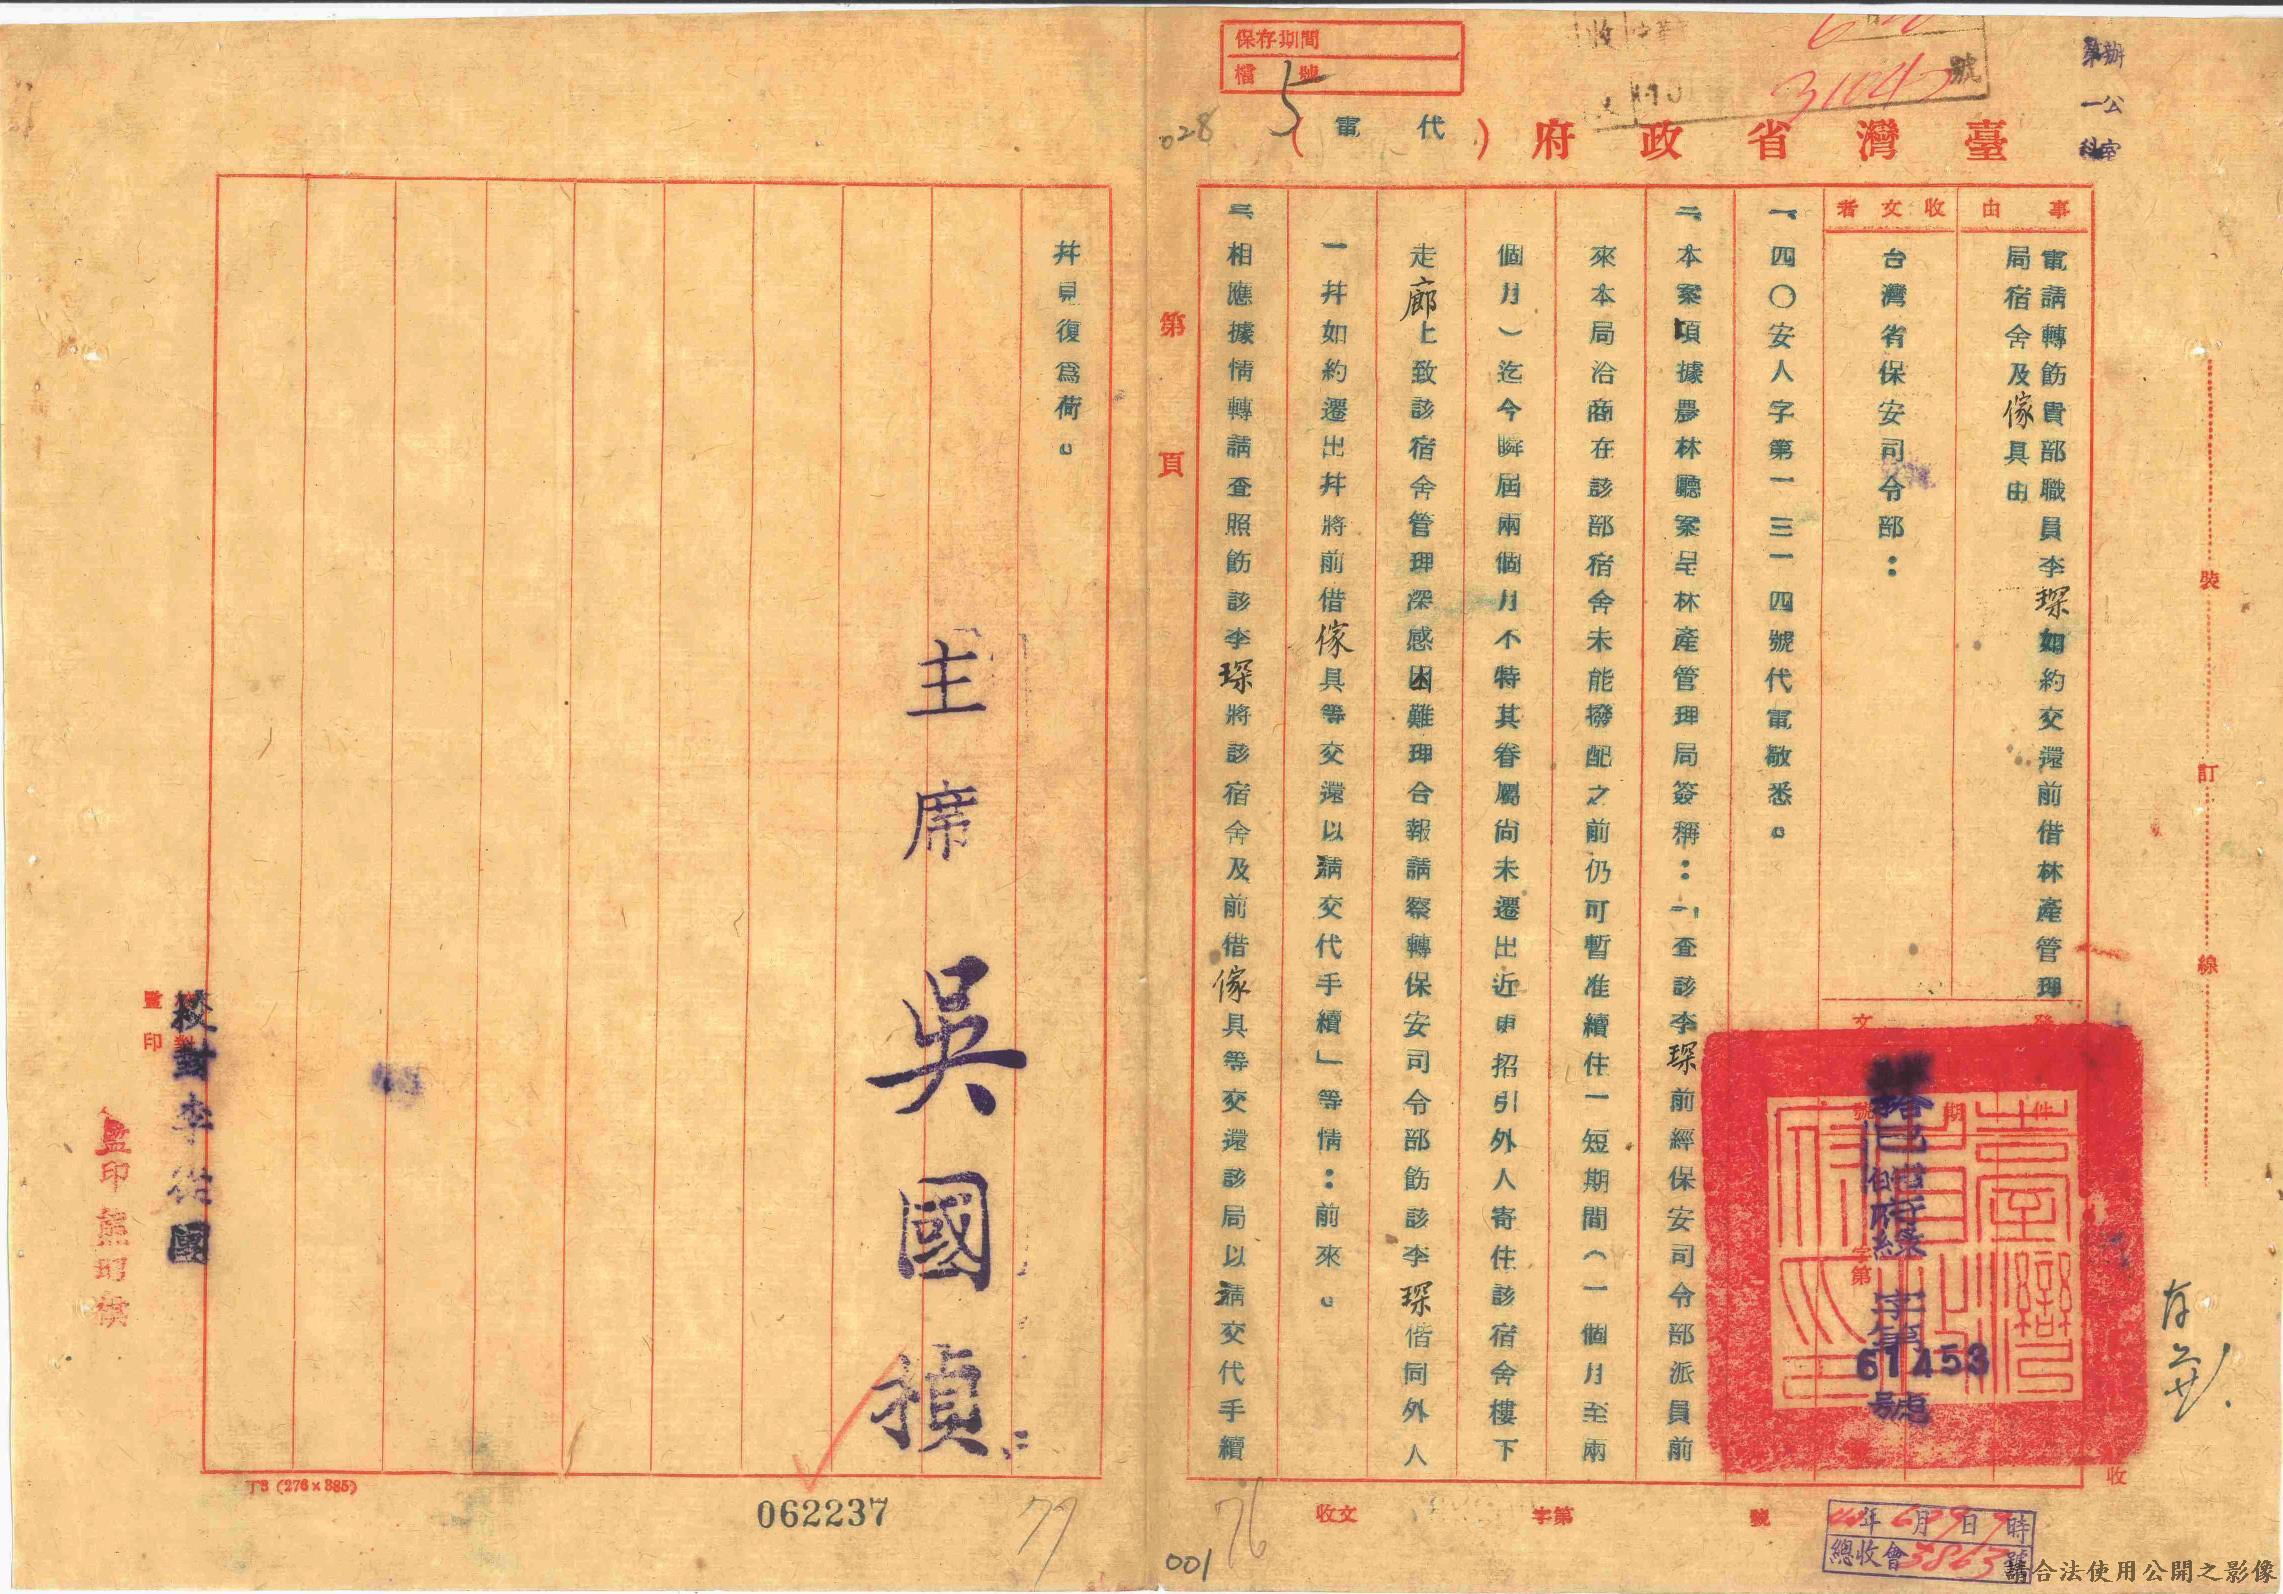 保存期間
檔 號
5
028
號
臺灣省政府（代電）
辦公室
第一科
事由
電請轉飭貴部職員李琛如約交還前借林產管理
局宿舍及傢具由
收文者
台灣省保安司令部：
一、四〇安人字第一三一四號代電敬悉。
二、本案項據農林廳案呈林產管理局簽稱：「一查該李琛前經保安司令部派員前
來本局洽商在該部宿舍未能撥配之前仍可暫准續住一短期間（一個月至兩
個月）迄今瞬屆兩個月不特其眷屬尚未遷出近申招引外人寄住該宿舍樓下
走廊上致該宿舍管理深感困難理合報請察轉保安司令部飭該李琛偕同外人
一幷如約遷出幷將前借傢具等交還以請交代手續」等情：前來。
三、相應據情轉請查照飭該李琛將該宿舍及前借傢具等交還該局以請交代手續
幷見復為荷。
主席 吳國楨
字第
61453
號
第 頁
裝 訂 線
存
監印
校對李從國
監印熊
丁3 (276×385)
062237
77
76
001
收文 字第 號
收
年6月 日 時
總收會3863號
請合法使用公開之影像